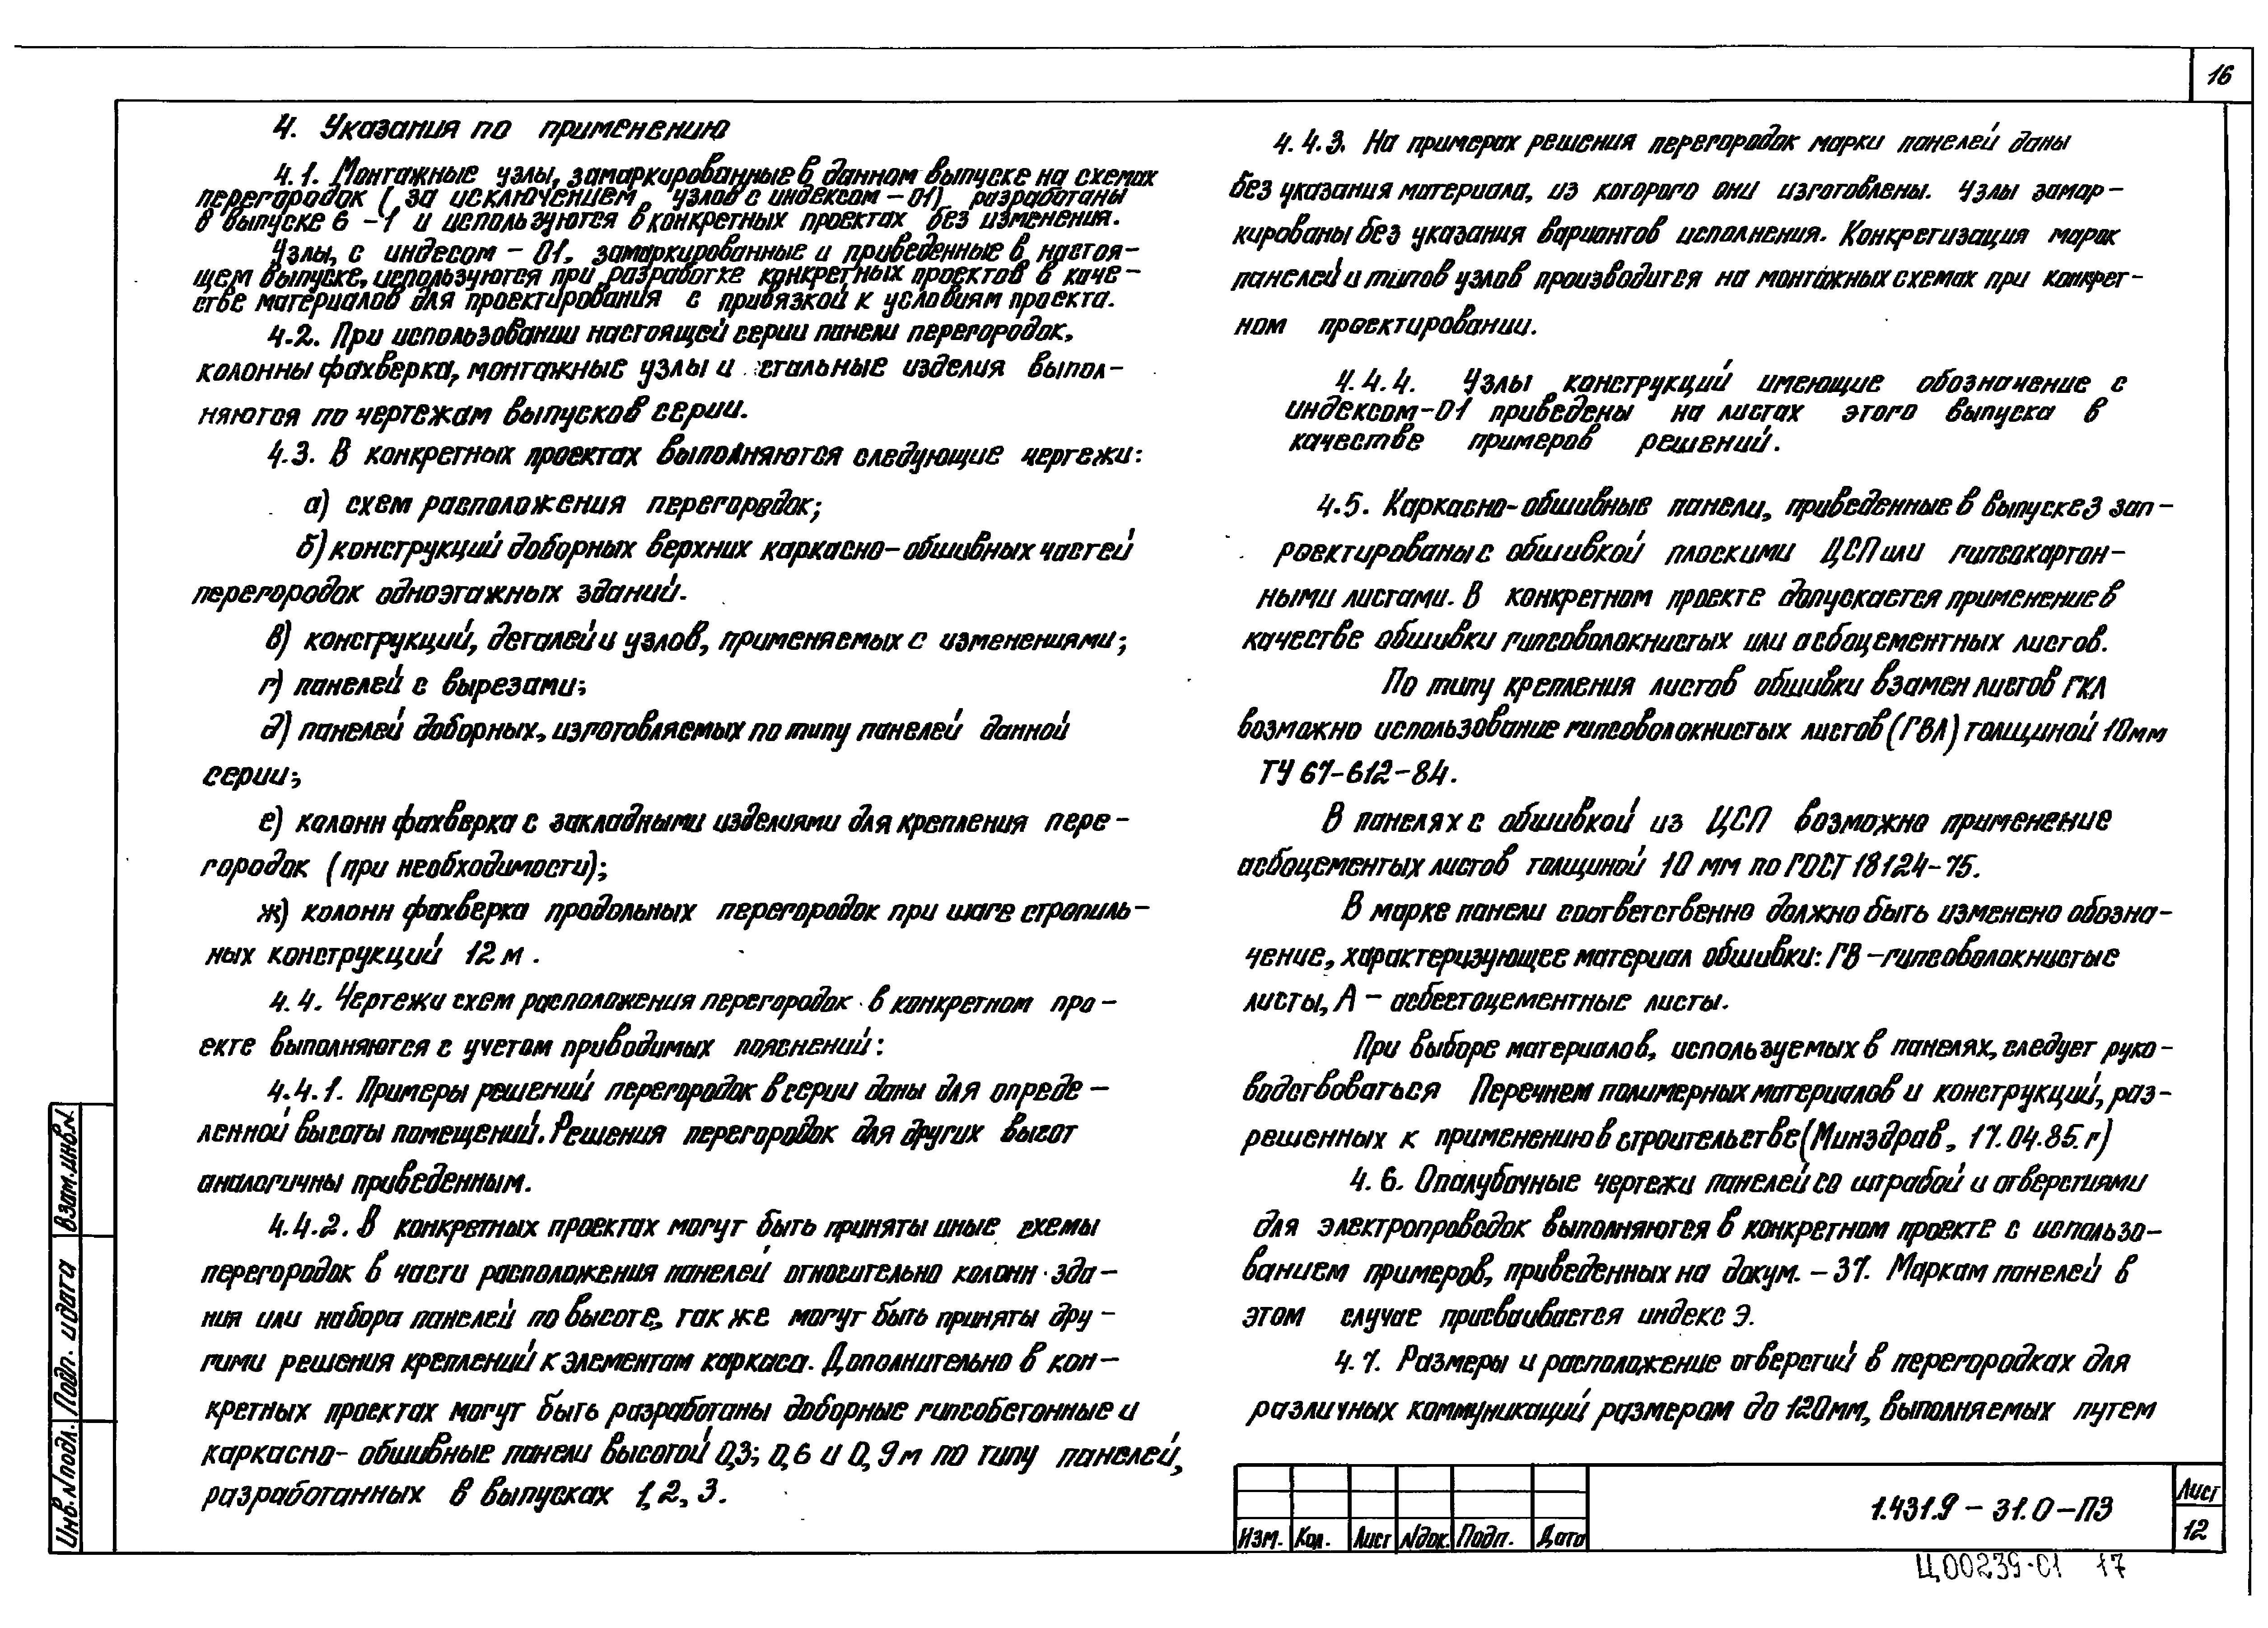 16
4. Указания по применению
4.1. Монтажные узлы, замаркированные в данном выпуске на схемах
перегородок (за исключением узлов с индексом -01) разработаны
в выпуске 6-1 и используются в конкретных проектах без изменения.
Узлы, с индесом - 01, замаркированные и приведенные в настоя-
щем выпуске, используются при разработке конкретных проектов в каче-
стве материалов для проектирования с привязкой к условиям проекта.
4.2. При использовании настоящей серии панели перегородок,
колонны фахверка, монтажные узлы и стальные изделия выпол-
няются по чертежам выпусков серии.
4.3. В конкретных проектах выполняются следующие чертежи:
а) схем расположения перегородок;
б) конструкций доборных верхних каркасно-обшивных частей
перегородок одноэтажных зданий.
в) конструкций, деталей и узлов, применяемых с изменениями;
г) панелей с вырезами;
д) панелей доборных, изготовляемых по типу панелей данной
серии;
е) колонн фахверка с закладными изделиями для крепления пере-
городок (при необходимости);
ж) колонн фахверка продольных перегородок при шаге стропиль-
ных конструкций 12 м.
4.4. Чертежи схем расположения перегородок в конкретном про-
екте выполняются с учетом приводимых пояснений:
4.4.1. Примеры решений перегородок в серии даны для опреде-
ленной высоты помещений. Решения перегородок для других высот
аналогичны приведенным.
4.4.2. В конкретных проектах могут быть приняты иные схемы
перегородок в части расположения панелей относительно колонн зда-
ния или набора панелей по высоте, так же могут быть приняты дру-
гими решения креплений к элементам каркаса. Дополнительно в кон-
кретных проектах могут быть разработаны доборные гипсобетонные и
каркасно-обшивные панели высотой 0,3; 0,6 и 0,9м по типу панелей,
разработанных в выпусках 1,2,3.
4.4.3. На примерах решения перегородок марки панелей даны
без указания материала, из которого они изготовлены. Узлы замар-
кированы без указания вариантов исполнения. Конкретизация марок
панелей и типов узлов производится на монтажных схемах при конкрет-
ном проектировании.
4.4.4. Узлы конструкций имеющие обозначение с
индексом-01 приведены на листах этого выпуска в
качестве примеров решений.
4.5. Каркасно-обшивные панели, приведенные в выпуске 3 зап-
роектированы с обшивкой плоскими ЦСП или гипсокартон-
ными листами. В конкретном проекте допускается применение в
качестве обшивки гипсоволокнистых или асбоцементных листов.
По типу крепления листов обшивки взамен листов ГКЛ
возможно использование гипсоволокнистых листов (ГВЛ) толщиной 10мм
ТУ 67-612-84.
В панелях с обшивкой из ЦСП возможно применение
асбоцементых листов толщиной 10 мм по ГОСТ 18124-75.
В марке панели соответственно должно быть изменено обозна-
чение, характеризующее материал обшивки: ГВ-гипсоволокнистые
листы, А - асбестоцементные листы.
При выборе материалов, используемых в панелях, следует руко-
водствоваться Перечнем полимерных материалов и конструкций, раз-
решенных к применению в строительстве (Минздрав, 17.04.85.г)
4.6. Опалубочные чертежи панелей со штрабой и отверстиями
для электропроводок выполняются в конкретном проекте с использо-
ванием примеров, приведенных на докум. - 37. Маркам панелей в
этом случае присваивается индекс Э.
4.7. Размеры и расположение отверстий в перегородках для
различных коммуникаций размером до 120мм, выполняемых путем
Инв.N подл. Подп. и дата Взам.инв.N
Изм. Кол. Лист Nдок. Подп. Дата
1.431.9 - 31.0-ПЗ
Лист
12
Ц00239-01 17